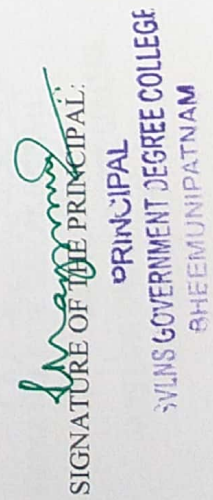 SIGNATURE OF THE PRINCIPAL:
PRINCIPAL
SVLNS GOVERNMENT DEGREE COLLEGE
BHEEMUNIPATNAM